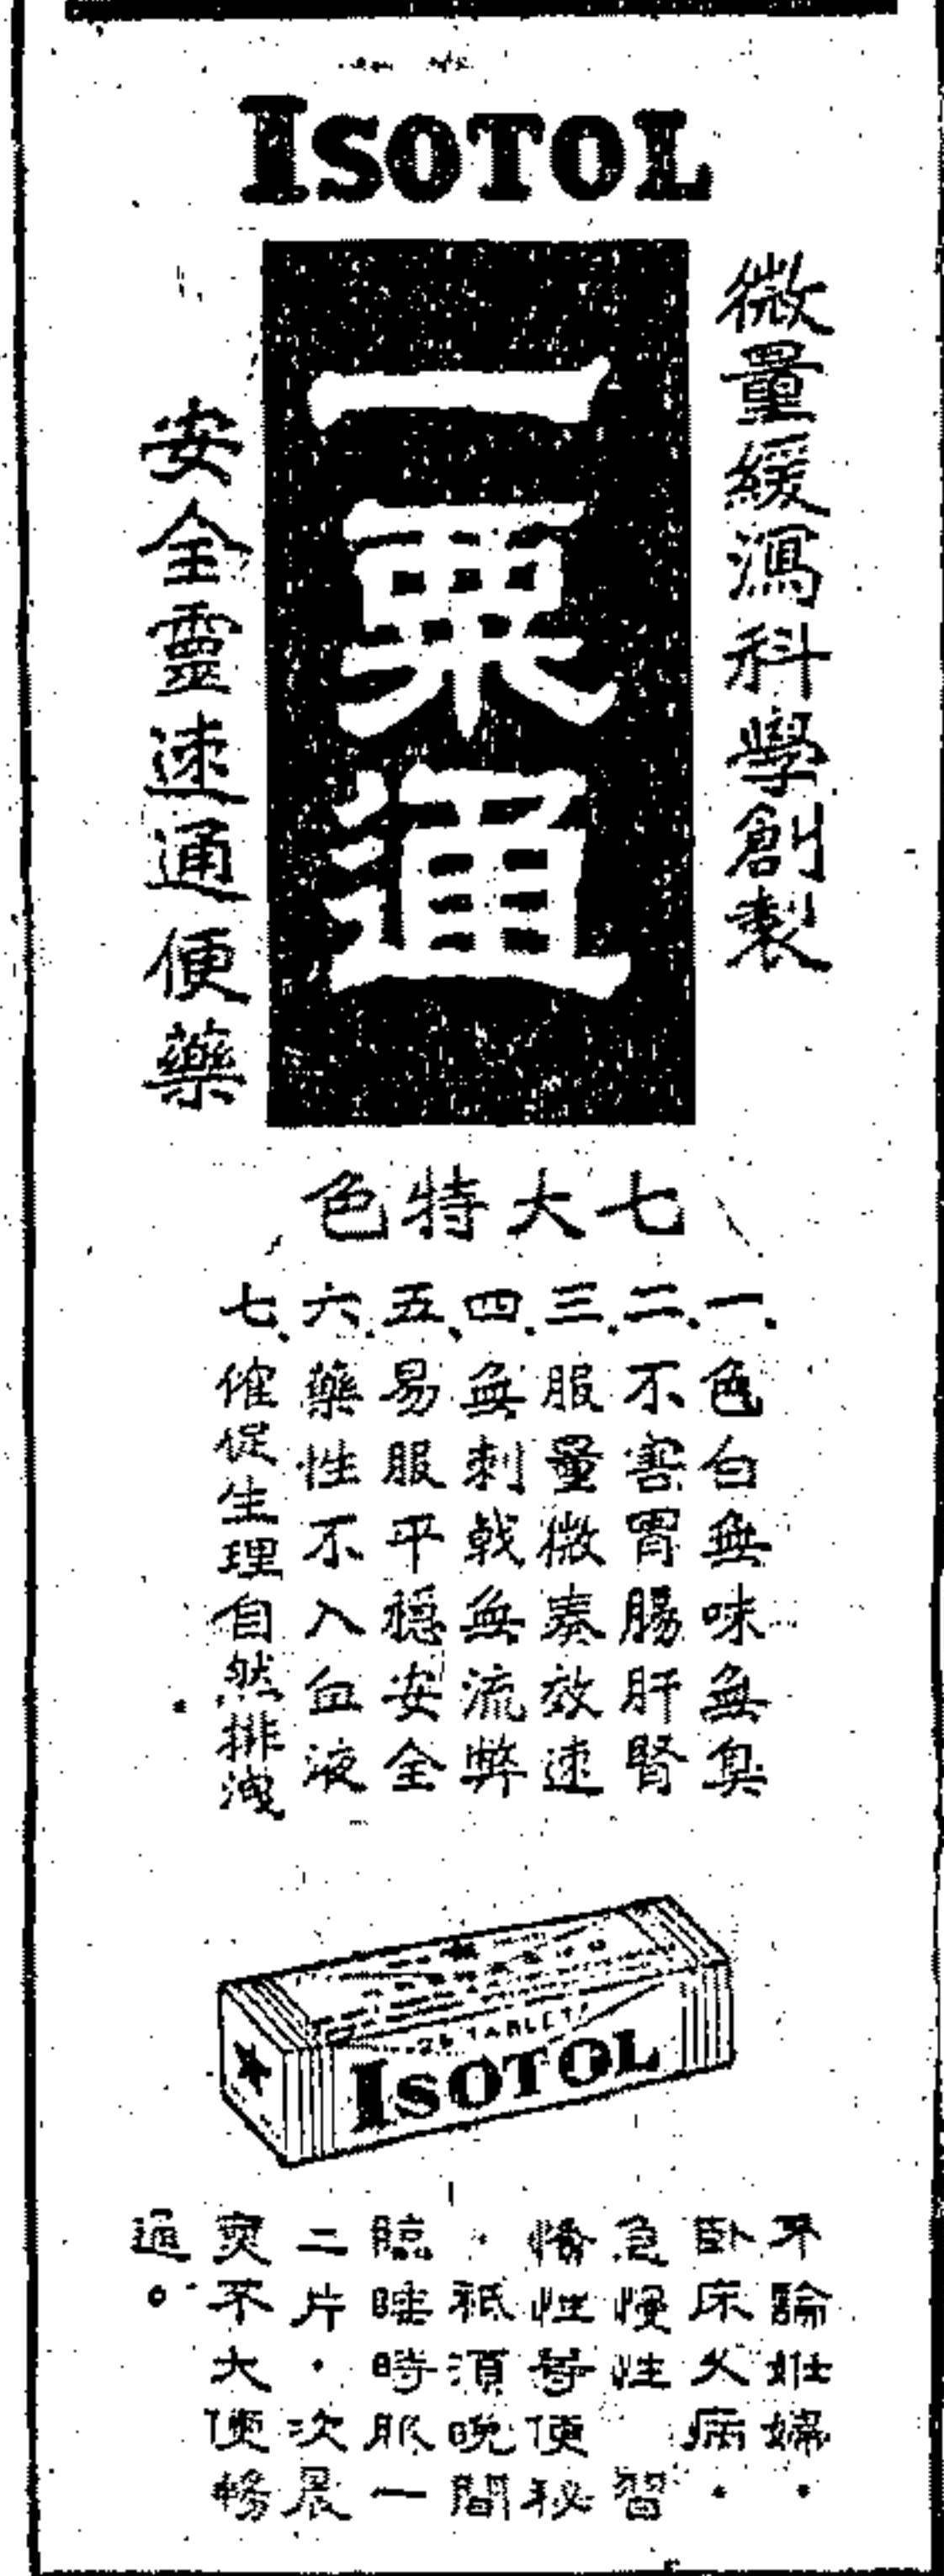 ISOTOL
微量緩瀉科學創製
一粟通
安全靈速通便藥
七大特色
一.色白無味無臭
二.不害胃腸肝腎
三.服量微奏效速
四.無刺戟無流弊
五.易服平穩安全
六.藥性不入血液
七.催促生理自然排洩
TABLET
ISOTOL
不論姙婦・
臥床久病・
急慢性 習
慣性等便秘
・祗須晚間
臨睡時服一
二片・次晨
奭不大便暢
通。